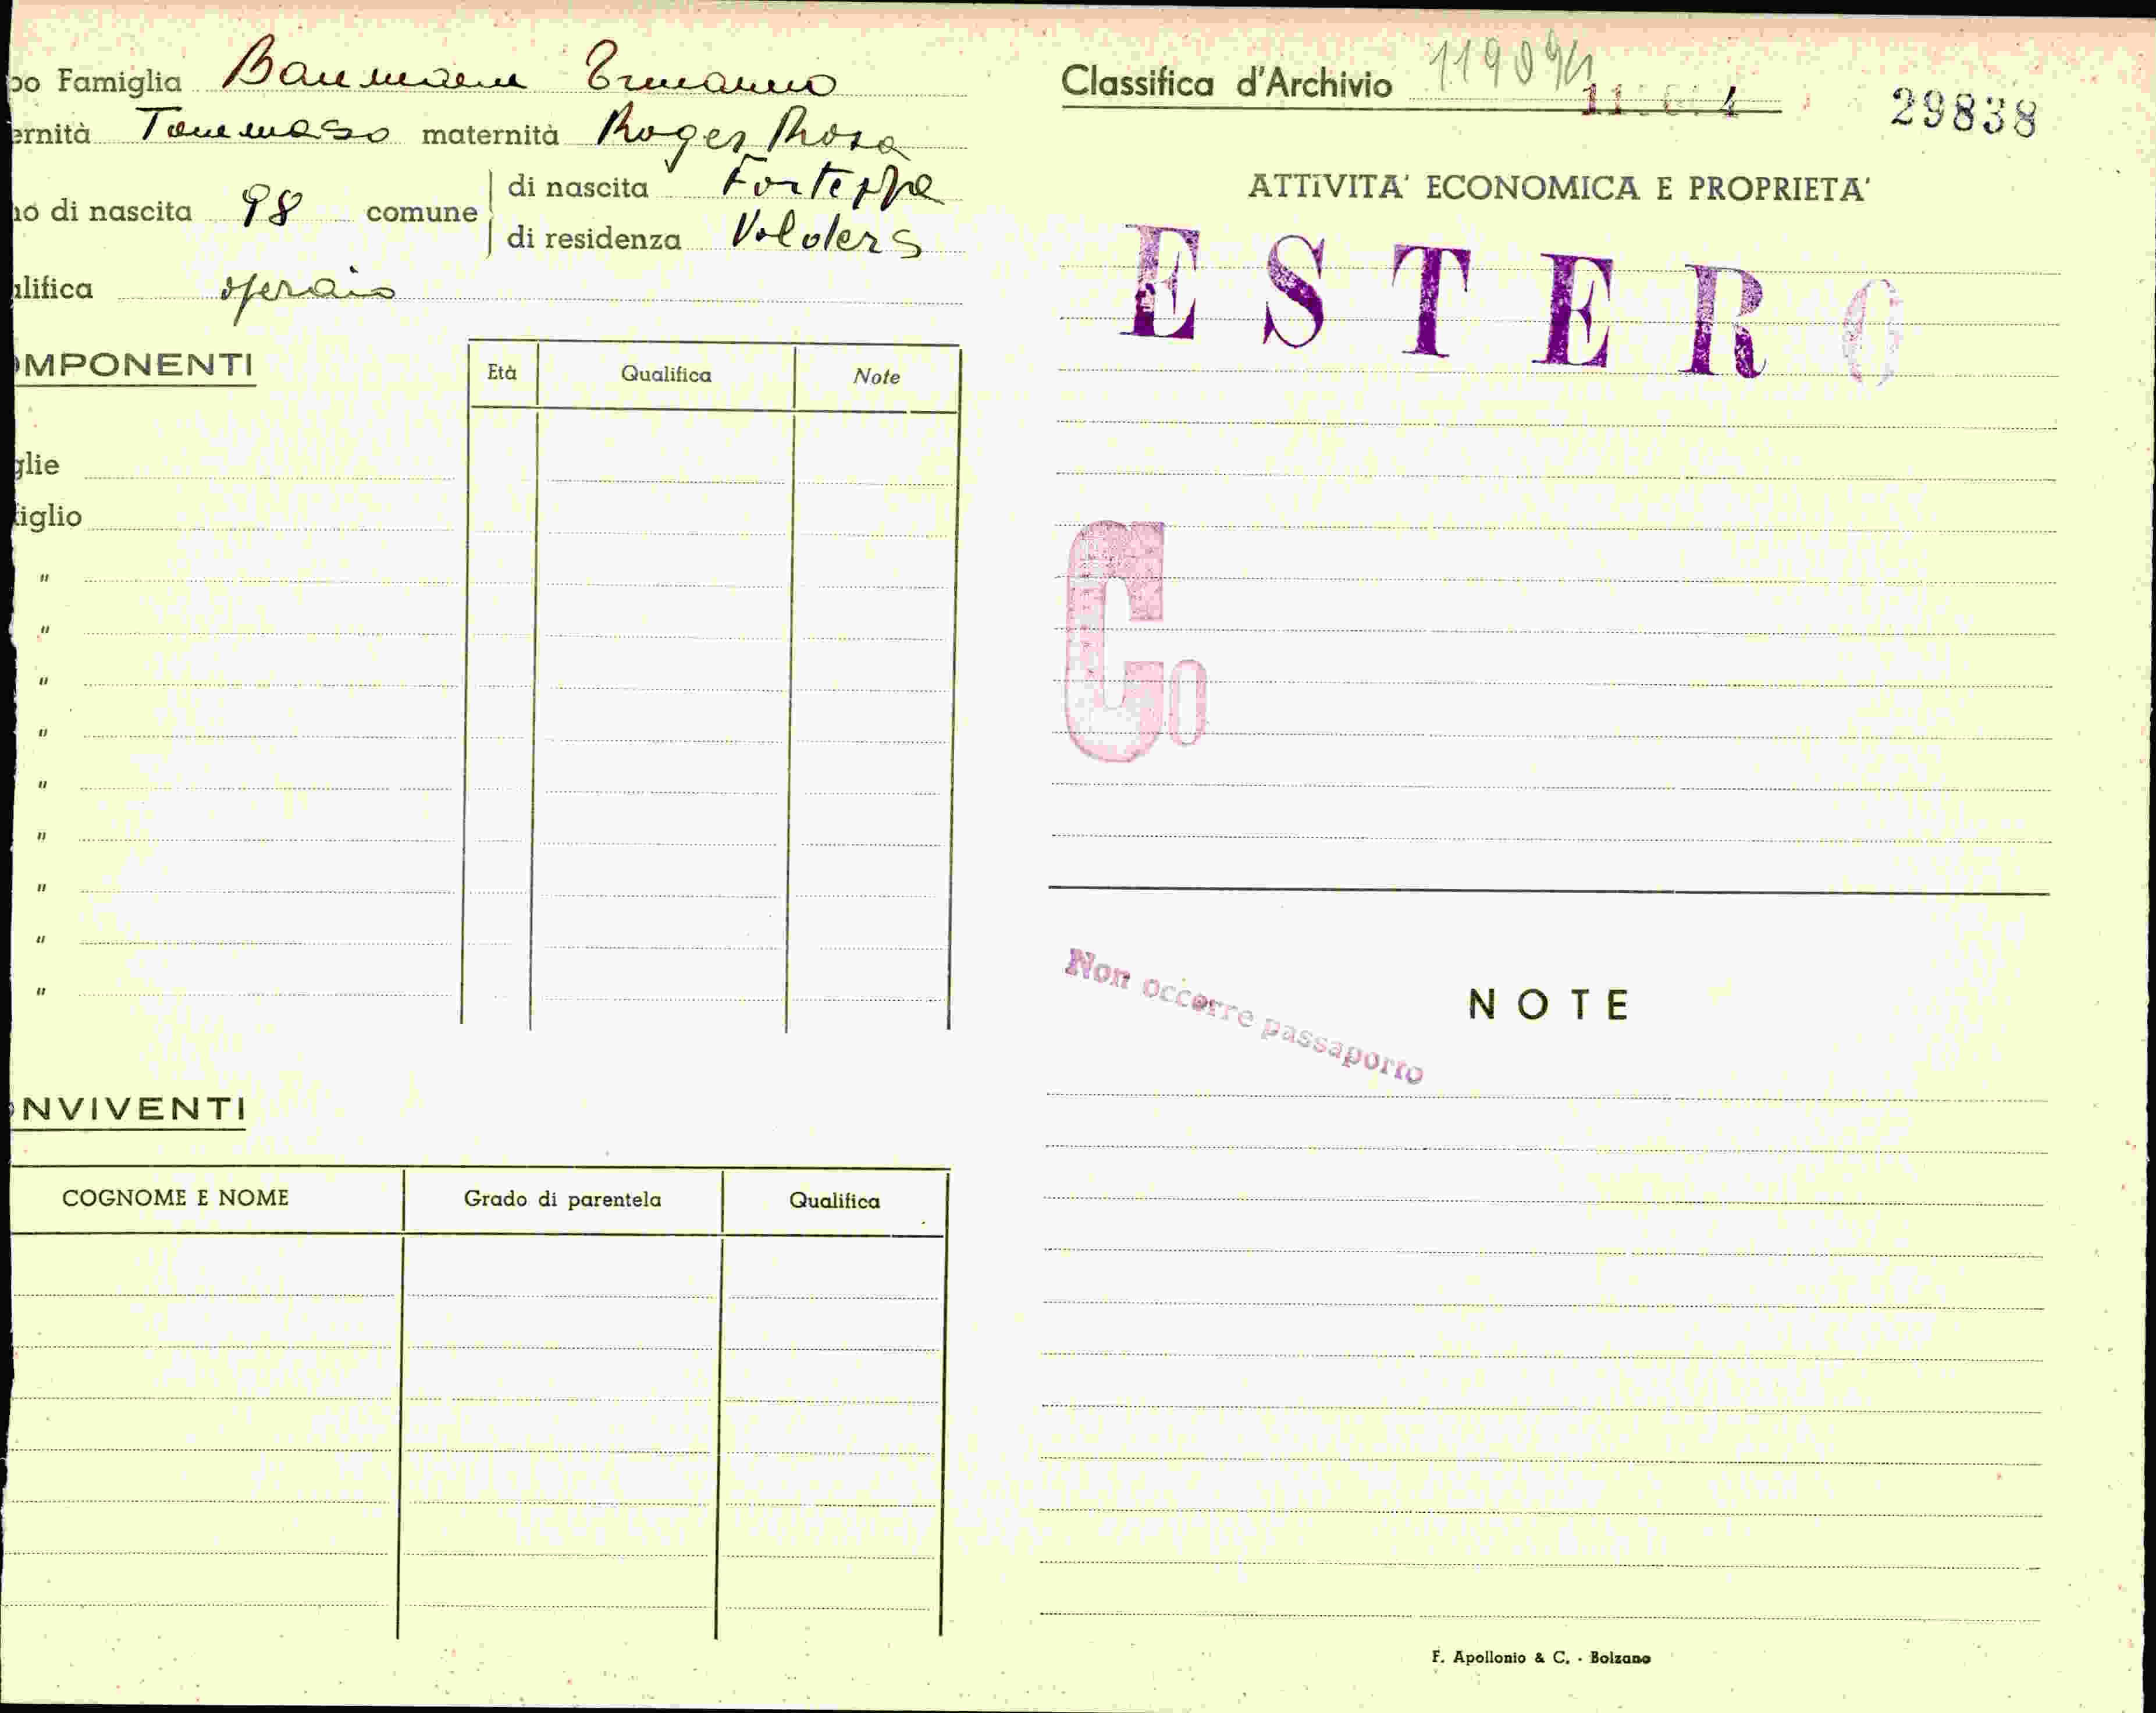 po Famiglia Baumann Ermanno
ernità Tommaso maternità Roger Rosa
no di nascita 98 comune di nascita Fortezza
di residenza Volders
alifica operaio
OMPONENTI
Età Qualifica Note
glie
figlio
"
"
"
"
"
"
"
"
"
ONVIVENTI
COGNOME E NOME Grado di parentela Qualifica
Classifica d'Archivio 119094
29838
ATTIVITA' ECONOMICA E PROPRIETA'
ESTERO
Co
Non occorre passaporto
NOTE
F. Apollonio & C. - Bolzano